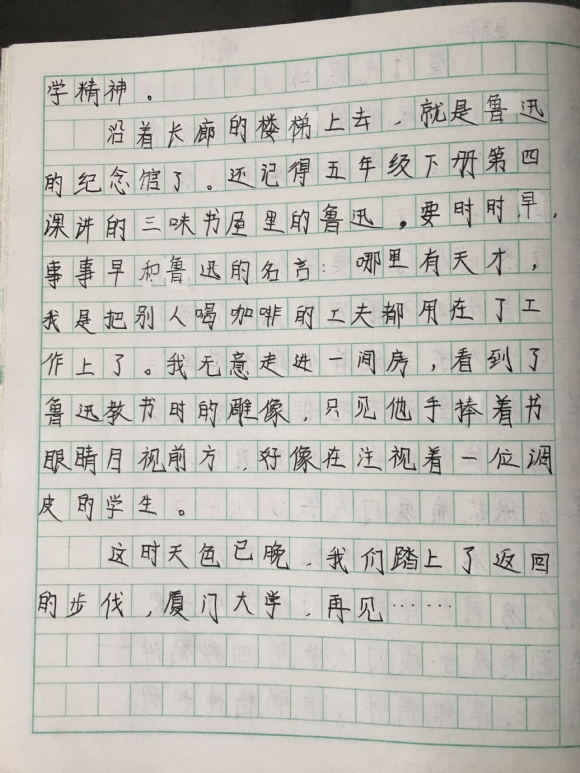 学精神。
沿着长廊的楼梯上去，就是鲁迅
的纪念馆了。还记得五年级下册第四
课讲的三味书屋里的鲁迅。要时时早，
事事早和鲁迅的名言：哪里有天才，
我是把别人喝咖啡的工夫都用在了工
作上了。我无意走进一间房，看到了
鲁迅教书时的雕像，只见他手捧着书
眼睛月视前方，好像在注视着一位调
皮的学生。
这时天色已晚，我们踏上了返回
的步伐，厦门大学，再见……